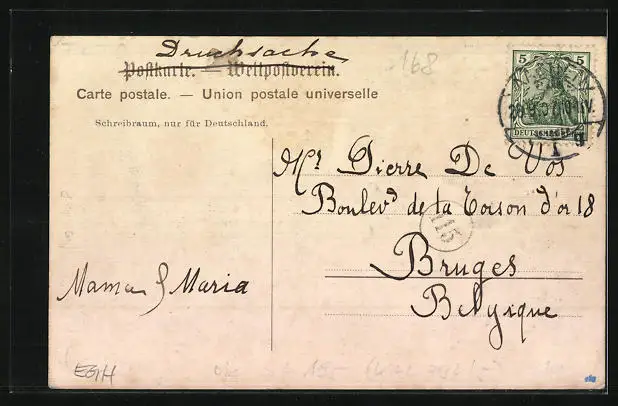 Drucksache
168
Postkarte. — Weltpostverein.
Carte postale. — Union postale universelle
Schreibraum, nur für Deutschland.
5 5
DEUTSCHES REICH
Mr Pierre De Vos
Boulevd de la Toison d'or 18
115
Bruges
Belgique
Mama & Maria
EGIH